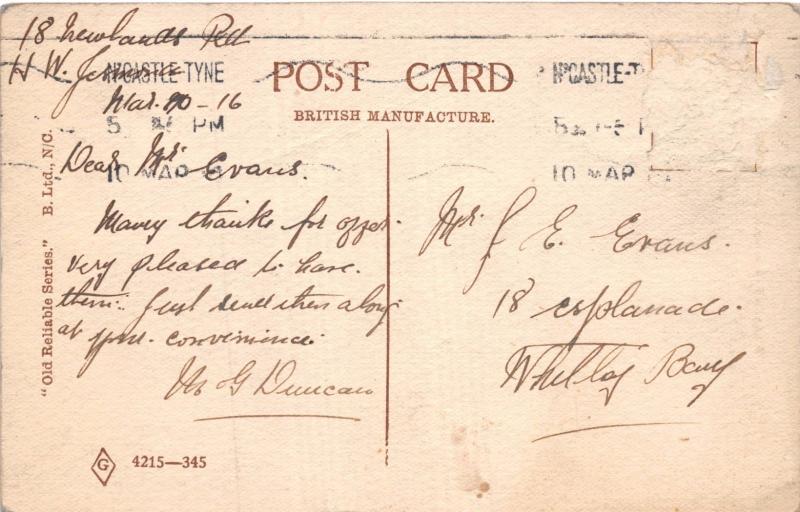 18 Newlands Rd
H. W.
Mar. 10-16
POST CARD
BRITISH MANUFACTURE.
N'CASTLE-TYNE
5 PM
10 MAR
N'CASTLE-T
10 MAR
Dear Mr Evans.
Many thanks for offer.
very pleased to have
them. Just send them along
at your convenience.
G Duncan
Mr. J E. Evans.
18 esplanade.
Whitley Bay
"Old Reliable Series." B. Ltd., N/C.
G 4215—345